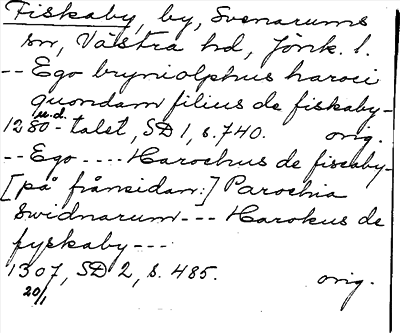 Fiskaby, by, Svenarums
sn, Västra hd, Jönk. l.
-- Ego bryniolphus haroci
quondam filius de fiskaby-
u.d.
1280-talet, SD 1, s. 740. orig.
-- Ego ---- Harochus de fiscaby-
[på frånsidan:] Parochia
Swidnarum --- Harokus de
fyskaby ---
1307, SD 2, s. 485. orig.
20/1